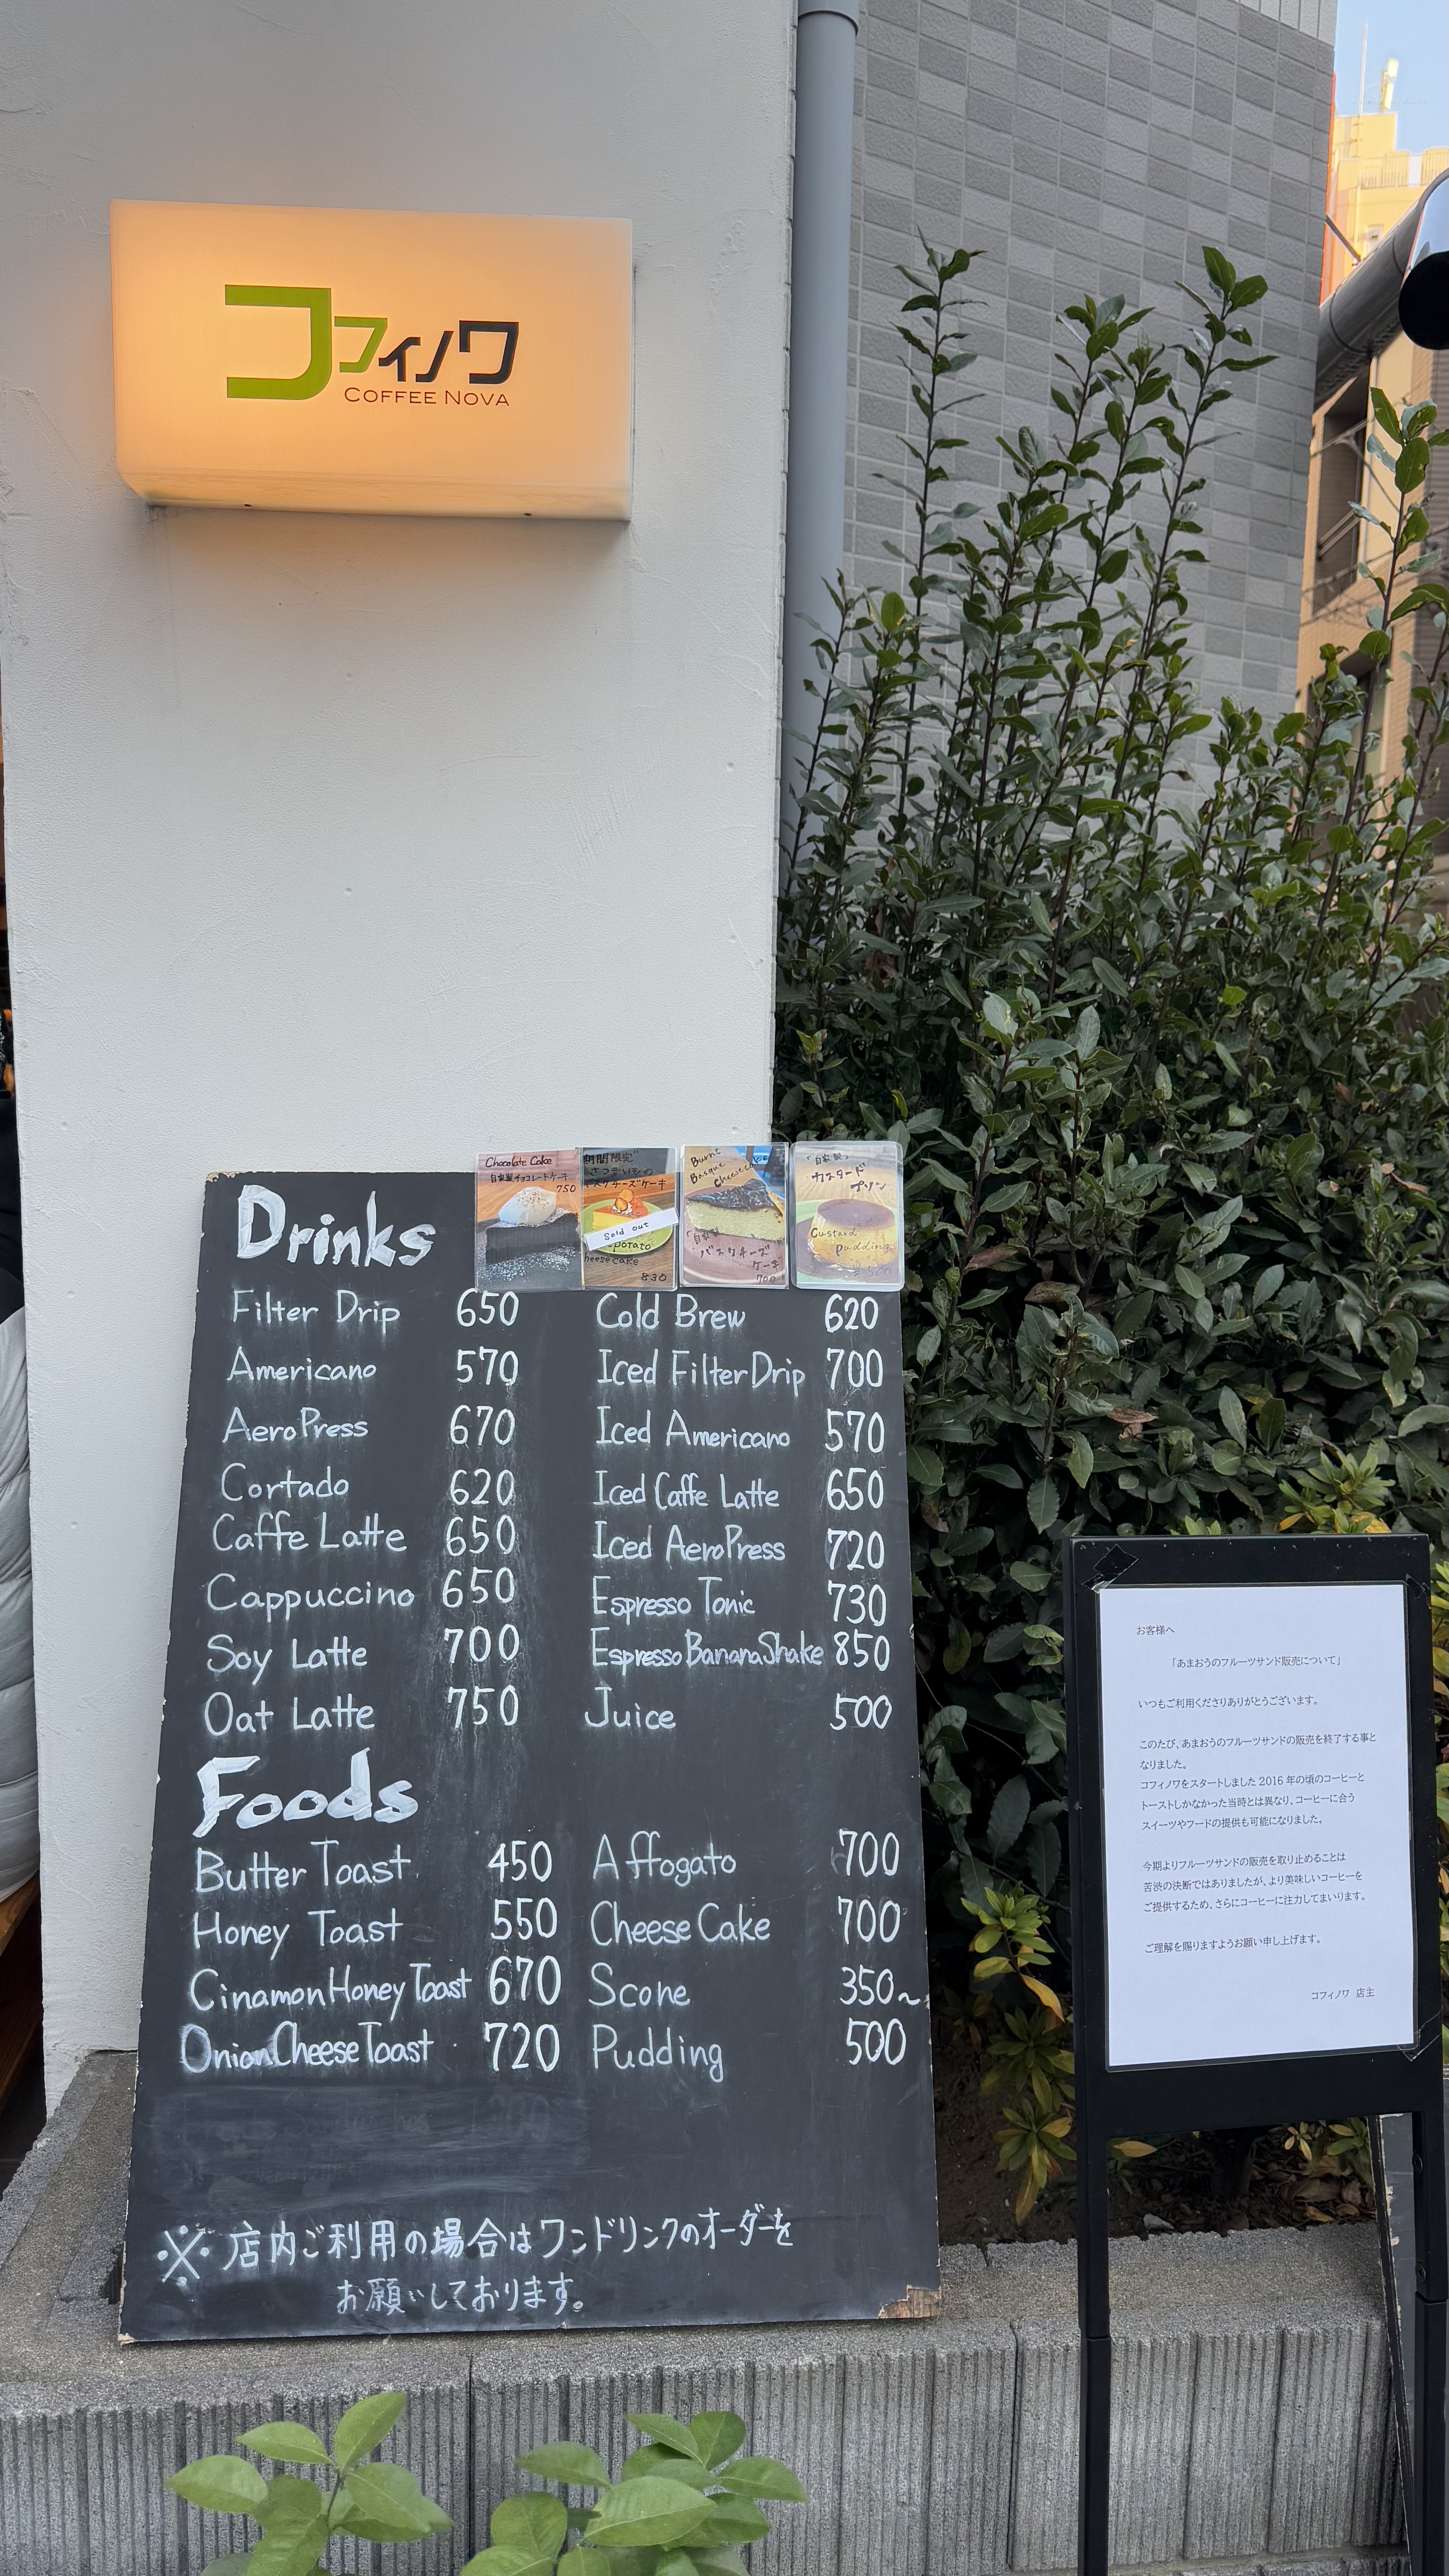 コフィノワ
COFFEE NOVA
Chocolate Cake
自家製チョコレートケーキ
750
期間限定
さつまいもの
バスクチーズケーキ
Sold out
potato
cheese cake
830
Burnt
Basque
Cheesecake
「自家製」
バスクチーズ
ケーキ
700
「自家製」
カスタード
プリン
Custard
pudding
Drinks
Filter Drip 650
Americano 570
AeroPress 670
Cortado 620
Caffe Latte 650
Cappuccino 650
Soy Latte 700
Oat Latte 750
Cold Brew 620
Iced Filter Drip 700
Iced Americano 570
Iced Caffe Latte 650
Iced AeroPress 720
Espresso Tonic 730
Espresso Banana Shake 850
Juice 500
Foods
Butter Toast 450
Honey Toast 550
Cinamon Honey Toast 670
Onion Cheese Toast 720
Affogato 700
Cheese Cake 700
Scone 350~
Pudding 500
※店内ご利用の場合はワンドリンクのオーダーを
お願いしております。
お客様へ
「あまおうのフルーツサンド販売について」
いつもご利用くださりありがとうございます。
このたび、あまおうのフルーツサンドの販売を終了する事と
なりました。
コフィノワをスタートしました 2016 年の頃のコーヒーと
トーストしかなかった当時とは異なり、コーヒーに合う
スイーツやフードの提供も可能になりました。
今期よりフルーツサンドの販売を取り止めることは
苦渋の決断ではありましたが、より美味しいコーヒーを
ご提供するため、さらにコーヒーに注力してまいります。
ご理解を賜りますようお願い申し上げます。
コフィノワ 店主